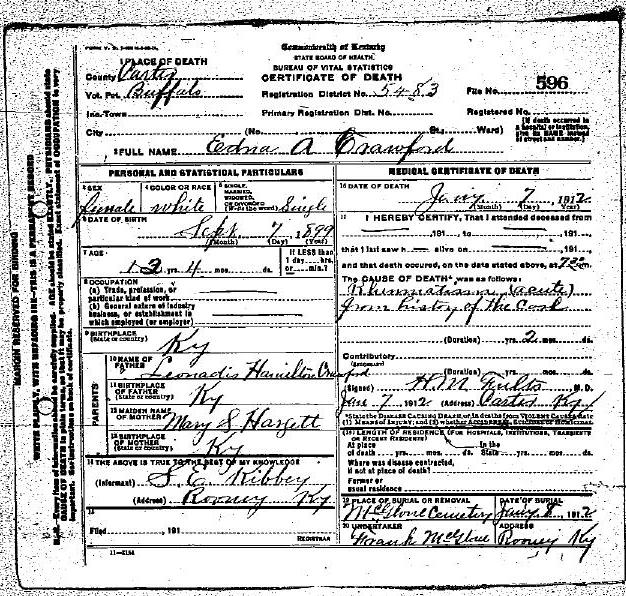 Commonwealth of Kentucky
STATE BOARD OF HEALTH
BUREAU OF VITAL STATISTICS
CERTIFICATE OF DEATH
1 PLACE OF DEATH
County Carter
Vot. Pct. Buffalo
Registration District No. 5483
File No. 596
Inc. Town
Primary Registration Dist. No.
Registered No.
City (No. St., Ward)
[If death occurred in a hospital or institution, give its NAME instead of street and number.]
2 FULL NAME Edna A Crawford
MARGIN RESERVED FOR BINDING
WRITE PLAINLY, WITH UNFADING INK—THIS IS A PERMANENT RECORD
PERSONAL AND STATISTICAL PARTICULARS
3 SEX
Female
4 COLOR OR RACE
White
5 SINGLE, MARRIED, WIDOWED, OR DIVORCED
(Write the word)
Single
6 DATE OF BIRTH
Sept 7, 1899
(Month) (Day) (Year)
7 AGE
12 yrs. 4 mos. ds.
If LESS than 1 day, hrs. or min.?
8 OCCUPATION
(a) Trade, profession, or particular kind of work
(b) General nature of industry, business, or establishment in which employed (or employer)
9 BIRTHPLACE
(State or country)
Ky
PARENTS
10 NAME OF FATHER
Leonadis Hamilton Crawford
11 BIRTHPLACE OF FATHER
(State or country)
Ky
12 MAIDEN NAME OF MOTHER
Mary S Hargett
13 BIRTHPLACE OF MOTHER
(State or country)
Ky
14 THE ABOVE IS TRUE TO THE BEST OF MY KNOWLEDGE
(Informant) S. E. Kibbey
(Address) Rooney Ky
15
Filed , 191
REGISTRAR
MEDICAL CERTIFICATE OF DEATH
16 DATE OF DEATH
Jany 7, 1912
(Month) (Day) (Year)
17 I HEREBY CERTIFY, That I attended deceased from
, 191 , to , 191 ,
that I last saw h alive on , 191 ,
and that death occurred, on the date stated above, at m.
The CAUSE OF DEATH* was as follows:
Rheumatism (acute)
from history of the Case
(Duration) yrs. 2 mos. ds.
Contributory
(Duration) yrs. mos. ds.
(Signed) H. M. Fults M. D.
Jan. 7, 1912 (Address) Carter Ky
*State the DISEASE CAUSING DEATH, or, in deaths from VIOLENT CAUSES, state (1) MEANS OF INJURY; and (2) whether ACCIDENTAL, SUICIDAL or HOMICIDAL.
18 LENGTH OF RESIDENCE (FOR HOSPITALS, INSTITUTIONS, TRANSIENTS OR RECENT RESIDENTS)
At place of death yrs. mos. ds. In the State yrs. mos. ds.
Where was disease contracted, if not at place of death?
Former or usual residence
19 PLACE OF BURIAL OR REMOVAL
McGlone Cemetery
DATE OF BURIAL
Jany 8, 1912
20 UNDERTAKER
Frank McGlone
ADDRESS
Rooney Ky
11-2184